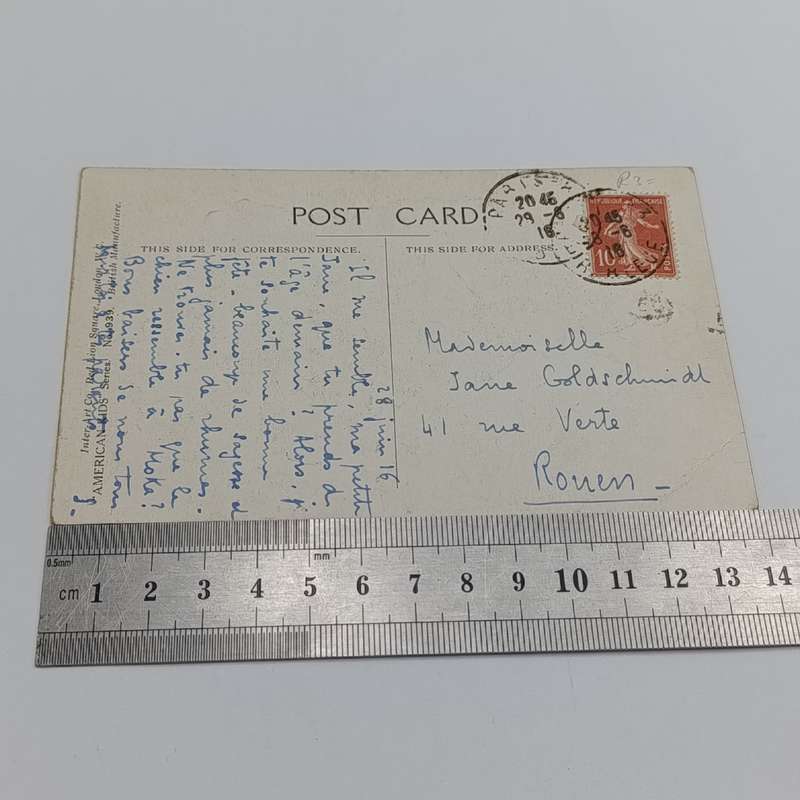 POST CARD
THIS SIDE FOR CORRESPONDENCE.
THIS SIDE FOR ADDRESS.
28 juin 16
Il me semble, ma petite
Jane, que tu prends de
l'âge demain? Alors, j
te souhaite une bonne
fête - beaucoup de sagesse et
plus jamais de rhumes.
Ne trouves-tu pas que le
chien ressemble à Moka?
Bons baisers de nous tous
Inter-Art Co., Red Lion Square, London, W.C.
"AMERICAN KIDS" Series. No. 939. British Manufacture.
PARIS
20 45
29 - 6
16
REPUBLIQUE FRANÇAISE
10
Mademoiselle
Jane Goldschmidt
41 rue Verte
Rouen
0.5mm
mm
cm 1 2 3 4 5 6 7 8 9 10 11 12 13 14